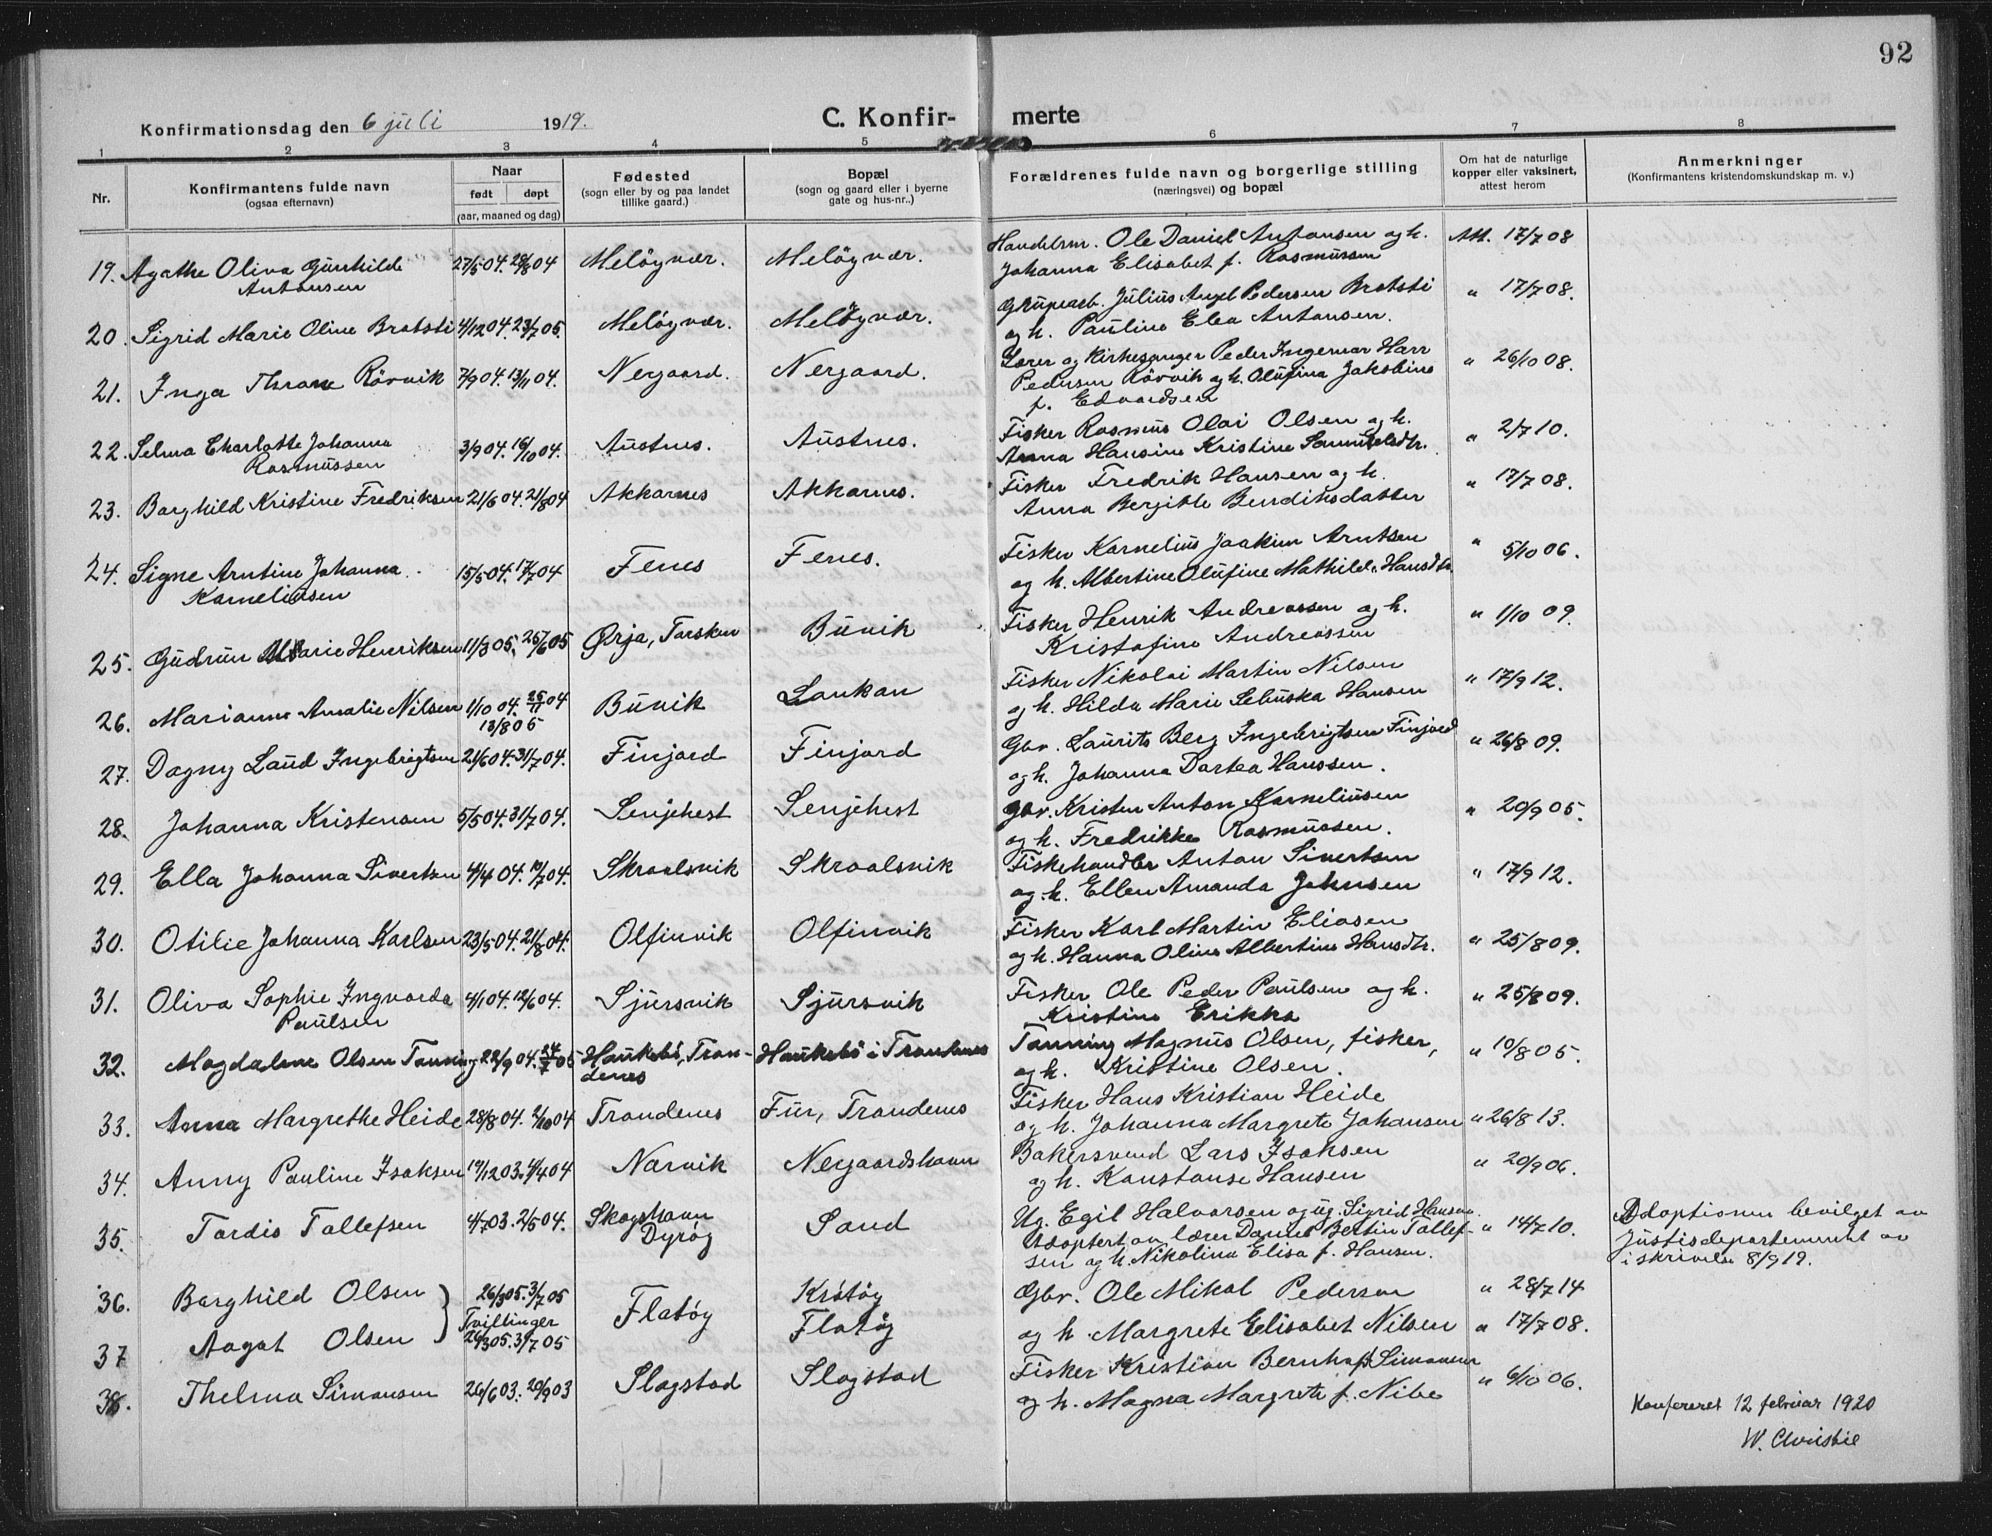 92
Konfirmationsdag den 6 juli 1919.
C. Konfir- merte
1 2 3 4 5 6 7 8
Nr.
Konfirmantens fulde navn
(ogsaa efternavn)
Naar
født døpt
(aar, maaned og dag)
Fødested
(sogn eller by og paa landet
tillike gaard.)
Bopæl
(sogn og gaard eller i byerne
gate og hus-nr..)
Forældrenes fulde navn og borgerlige stilling
(næringsvei) og bopæl
Om hat de naturlige
kopper eller vaksinert,
attest herom
Anmerkninger
(Konfirmantens kristendomskundskap m. v.)
19. Agathe Oliva Gunhilde
Antonsen
27/5 04. 28/8 04 Meløyvær. Meløyvær.
Handelsm. Ole Daniel Antonsen og h.
Johanna Elisabet f. Rasmussen
Att. 17/7 08
20. Sigrid Marie Oline Bratsti 4/12 04. 23/7 05. Meløyvær. Meløyvær.
Grubearb. Julius Angel Pedersen Bratsti
og h. Pauline Elea Antonsen.
" 17/7 08.
21. Inga Thrane Rövik 7/9 04. 13/11 04. Nergaard. Nergaard.
Lærer og Kirkesanger Peder Ingemar Harr
Pedersen Rövik og h. Olufina Jakobine
f. Edvardsen
" 26/10 08.
22. Selma Charlotte Johanna
Rasmussen
3/9 04. 16/10 04. Austnes. Austnes.
Fisker Rasmus Olai Olsen og h.
Anna Hansine Kristine Samuelsdtr.
" 2/7 10.
23. Borghild Kristine Fredriksen 21/6 04. 21/8 04 Akkarnes Akkarnes.
Fisker Fredrik Hansen og h.
Anna Bergitte Bendiksdatter
" 17/7 08.
24. Signe Arntine Johanna
Korneliusen
15/5 04. 17/7 04 Fenes Fenes.
Fisker Kornelius Joakim Arntsen
og h. Albertine Olufine Mathilde Hansdtr.
" 5/10 06.
25. Gudrun Marie Henriksen 11/3 05. 25/6 05 Ørja, Torsken Buvik
Fisker Henrik Andreassen og h.
Kristofine Andreassen
" 1/10 09.
26. Marianne Amalie Nilsen 1/10 04. 25/11 04
13/8 05
Buvik Lankan
Fisker Nikolai Martin Nilsen
og h. Hilda Marie Lebuska Hansen
" 17/9 12.
27. Dagny Laud Ingebrigtsen 21/6 04. 31/7 04. Finjord Finjord
Gbr. Laurits Berg Ingebrigtsen Finjord
og h. Johanna Dortea Hanssen.
" 26/8 09.
28. Johanna Kristensen 5/5 04. 31/7 04. Senjehest Senjehest
Gbr. Kristen Anton Korneliusen
og h. Fredrikke Rasmussen.
" 20/9 05.
29. Ella Johanna Sivertsen 4/4 04. 10/7 04. Skrolsvik Skroalsvik
Fiskehandler Anton Sivertsen
og h. Ellen Amanda Johnsen
" 17/9 12.
30. Otilie Johanna Karlsen 23/5 04. 21/8 04. Olfinvik Olfinvik
Fisker Karl Martin Eliasen
og h. Hanna Oline Albertine Hansdtr.
" 25/8 09.
31. Oliva Sophie Ingvarda
Paulsen
4/1 04. 12/6 04. Sjursvik Sjursvik
Fisker Ole Peder Paulsen og h.
Kristine Erikka
" 25/8 09.
32. Magdalene Olsen Tanning 22/9 04. 24/7 05 Haukebö, Tron-
denes
Haukebö i Trondenes
Tanning Magnus Olsen, fisker,
og h. Kristine Olsen.
" 10/8 05.
33. Anna Margrethe Heide 28/8 04. 2/10 04 Trondenes Fur, Trondenes
Fisker Hans Kristian Heide
og h. Johanna Margrete Johansen
" 26/8 13.
34. Anny Pauline Isaksen 19/12 03. 4/4 04 Narvik Nergaardshavn
Bakersvend Lars Isaksen
og h. Konstanse Hansen
" 20/9 06.
35. Tordis Tollefsen 4/7 03. 2/5 04. Skogshavn
Dyröy
Sand
Ug. Egil Halvorsen og ug. Sigrid Hansen.
Adoptert av lærer Daniel Bertin Tollef-
sen og h. Nikolina Elisa f. Hansen.
" 14/7 10.
Adoptionen bevilget av
Justisdepartementet av
i skrivelse 8/9 19.
36. Borghild Olsen 26/3 05. 3/7 05
Tvillinger
Flatöy Kråtöy
Gbr. Ole Mikal Pedersen
" 28/7 14
37 Aagot Olsen 26/3 05. 3/7 05 Flatöy
og h. Margrete Elisabet Nilsen
" 17/7 08.
38. Thelma Simonsen 26/6 03. 20/9 03 Slogstad Slogstad
Fisker Kristian Bernhof Simonsen
og h. Magna Margrete f. Nibe
" 6/10 06.
Konfereret 12 februar 1920
W. Christie